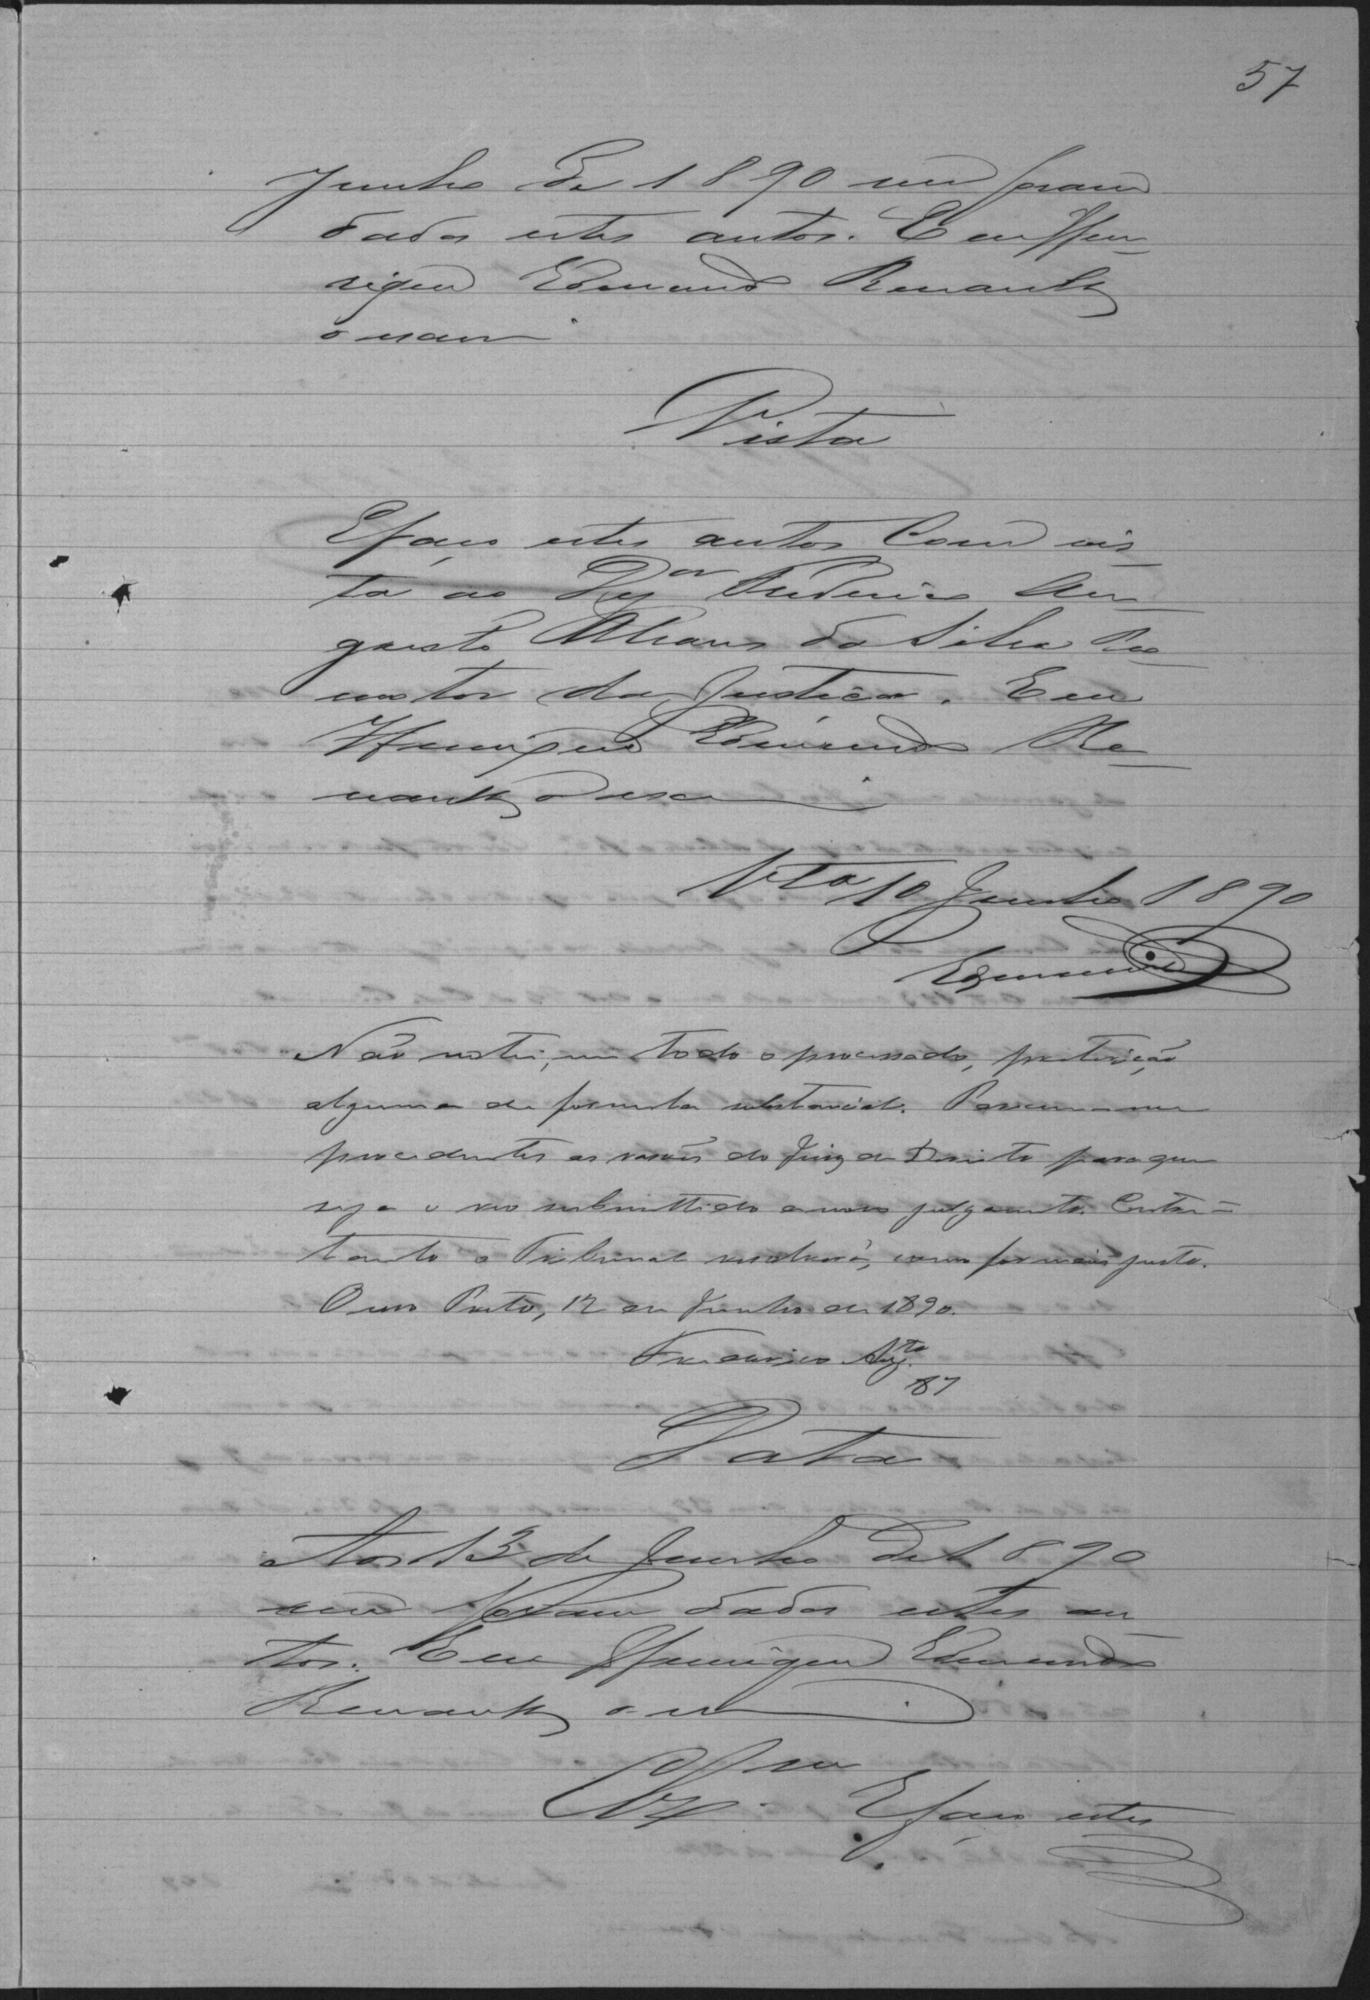 57
Junho de 1890 me foram
dados estes autos. Eu Hen-
rique Edmundo Renault
o escrevi.
Vista
E faço estes autos com vis-
ta ao Dez.or Frederico Au-
gusto Alvares da Silva Pro
motor da Justiça. Eu
Henrique Edmundo Re-
nault, o escrevi
V.ta 10 Junho 1890
Edmundo
Não notei, em todo o processado, preterição
alguma de formula substancial. Parecem-me
procedentes as rasões do Juiz de Direito para que
seja o reo submettido a novo julgamento. Entre=
tanto o Tribunal resolverá, como for mais justo.
Ouro Preto, 12 de Junho de 1890.
Frederico Aug.to
Data
Aos 13 de Junho de 1890
me foram dados estes au-
tos. Eu Henrique Edmundo
Renault, o escrevi.
Clz. E faço estes